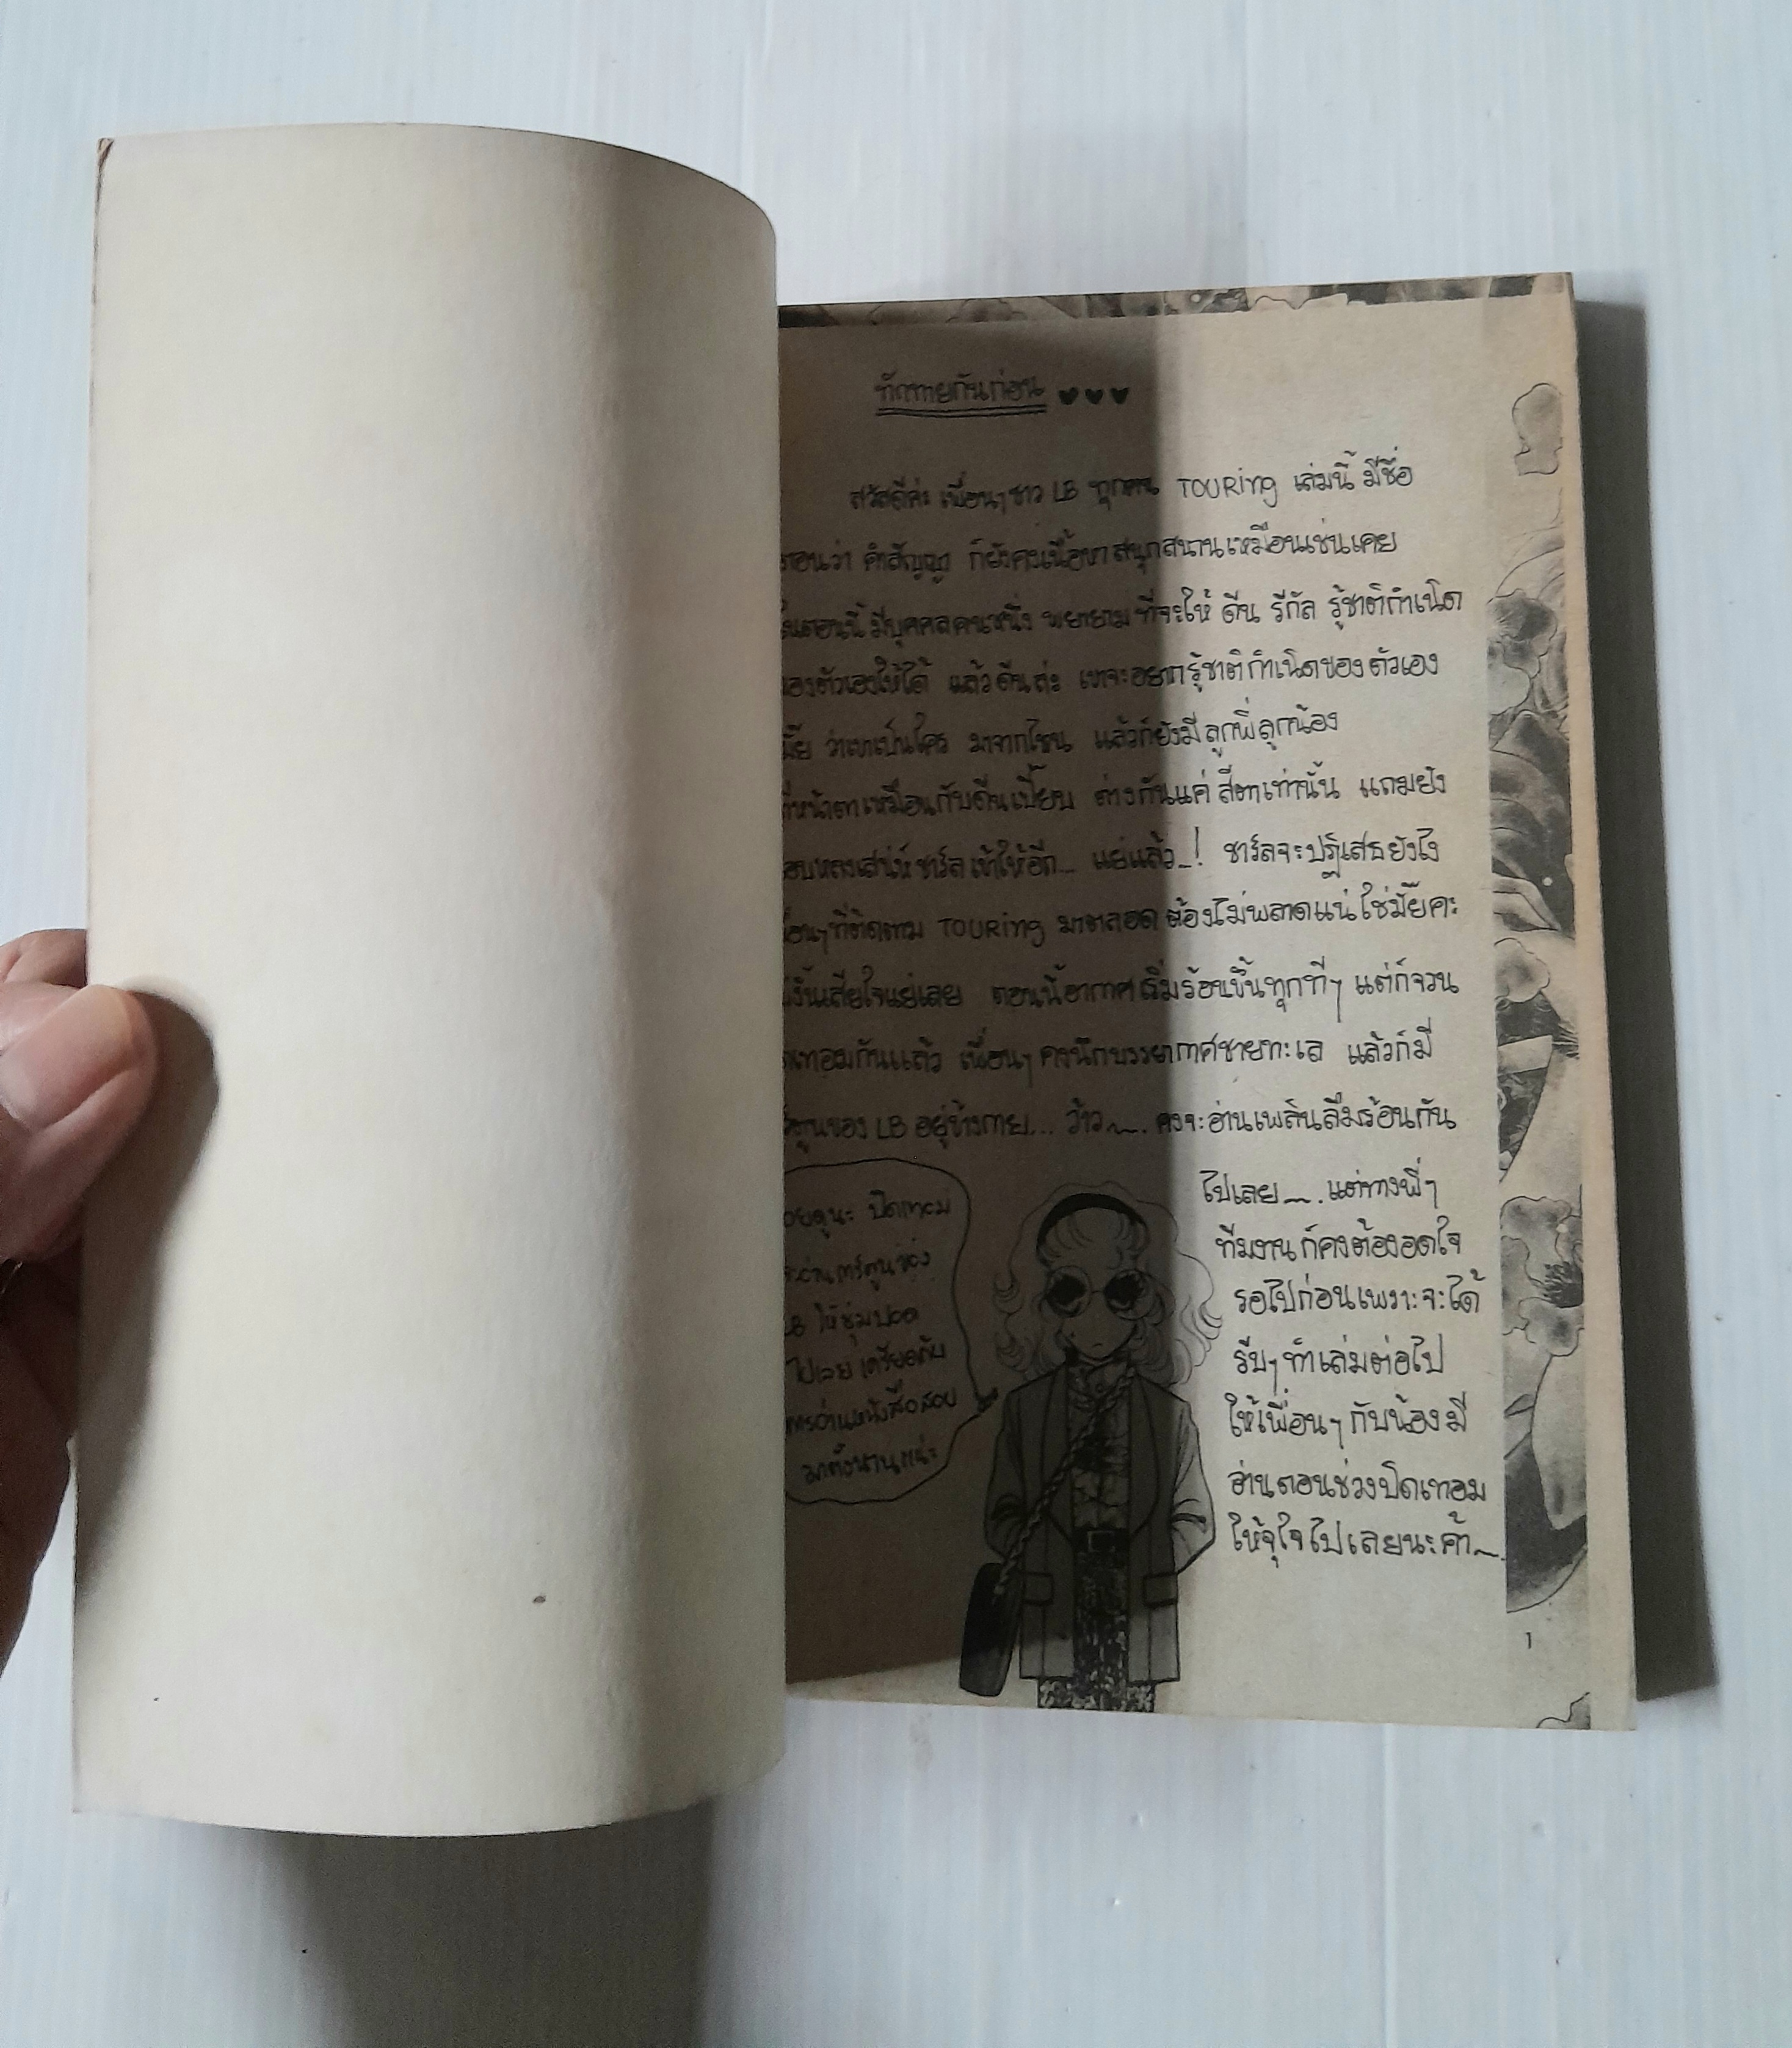 ทักทายกันก่อน
สวัสดีค่ะ เพื่อนๆชาว LB ทุกคน TOURing เล่มนี้ มีชื่อ
ตอนว่า คำสัญญา ก็ยังคงเนื้อหาสนุกสนานเหมือนเช่นเคย
ในตอนนี้ มีบุคคลคนหนึ่ง พยายามที่จะให้ ดีน รีกัล รู้ชาติกำเนิด
ของตัวเองให้ได้ แล้วดีนล่ะ เขาจะอยากรู้ชาติกำเนิดของตัวเอง
มั้ย ว่าเขาเป็นใคร มาจากไหน แล้วก็ยังมีลูกพี่ลูกน้อง
ที่หน้าตาเหมือนกับดีนเปี๊ยบ ต่างกันแค่ สีตาเท่านั้น แถมยัง
หลงเสน่ห์ชาร์ลเข้าให้อีก... แย่แล้ว...! ชาร์ลจะปฏิเสธยังไง
เพื่อนๆที่ติดตาม TOURing มาตลอดต้องไม่พลาดแน่ ใช่มั๊ยคะ
เสียใจแย่เลย ตอนนี้อากาศเริ่มร้อนขึ้นทุกทีๆ แต่ก็จวน
เทอมกันแล้ว เพื่อนๆ คงนึกบรรยากาศชายทะเล แล้วก็มี
ของ LB อยู่ข้างกาย... ว้าว~. คงจะอ่านเพลินลืมร้อนกัน
ไปเลย~. แต่ทางพี่ๆ
ทีมงานก็คงต้องอดใจ
รอไปก่อนเพราะจะได้
รีบๆทำเล่มต่อไป
ให้เพื่อนๆ กับน้องมี
อ่านตอนช่วงปิดเทอม
ให้จุใจไปเลยนะค้า~.
ปิดเทอม
อ่านการ์ตูนของ
LB ให้ชุ่มปอด
ไปเลย เครียดกับ
การอ่านหนังสือสอบ
มาตั้งนานแน่ะ
1